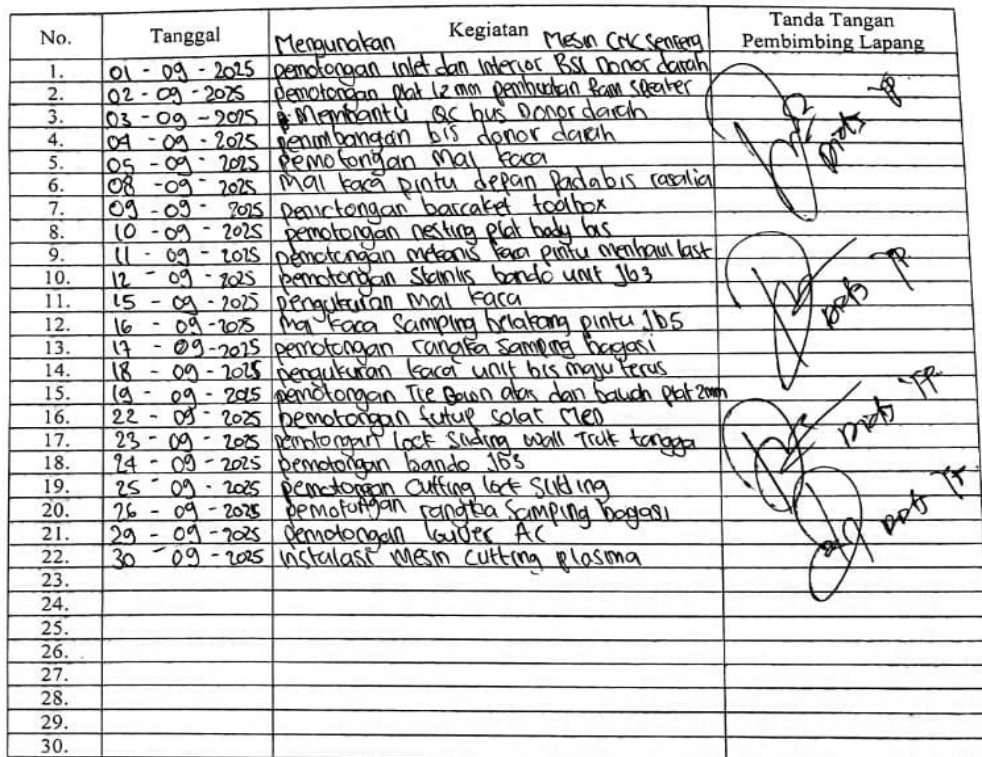 No. Tanggal Kegiatan Tanda Tangan Pembimbing Lapang
Mengunakan Mesin CNC
1. 01 - 09 - 2025 pemotongan inlet dan interior Donor darah
2. 02 - 09 - 2025 pemotongan plat 12 mm pembuatan
3. 03 - 09 - 2025 Membantu QC bus Donor darah
4. 04 - 09 - 2025 penimbangan bis donor darah
5. 05 - 09 - 2025 pemotongan Mal kaca
6. 08 - 09 - 2025 Mal kaca pintu depan Pada bis rosalia
7. 09 - 09 - 2025 pemotongan barcaket toolbox
8. 10 - 09 - 2025 pemotongan nesting plat body bis
9. 11 - 09 - 2025 pemotongan mekanis kaca pintu
10. 12 - 09 - 2025 pemotongan Stainlis bando unit Jb3
11. 15 - 09 - 2025 pengukuran Mal kaca
12. 16 - 09 - 2025 Mal kaca Samping belakang pintu Jb5
13. 17 - 09 - 2025 pemotongan rangka samping bagasi
14. 18 - 09 - 2025 pengukuran kaca unit bis maju terus
15. 19 - 09 - 2025 pemotongan Tie Down atas dan bawah plat 2mm
16. 22 - 09 - 2025 pemotongan tutup solar
17. 23 - 09 - 2025 pemotongan lock Sliding wall Truk tangga
18. 24 - 09 - 2025 pemotongan bando Jb3
19. 25 - 09 - 2025 pemotongan cutting lock Sliding
20. 26 - 09 - 2025 pemotongan rangka Samping bagasi
21. 29 - 09 - 2025 pemotongan louver AC
22. 30 - 09 - 2025 instalasi Mesin cutting plasma
23.
24.
25.
26.
27.
28.
29.
30.